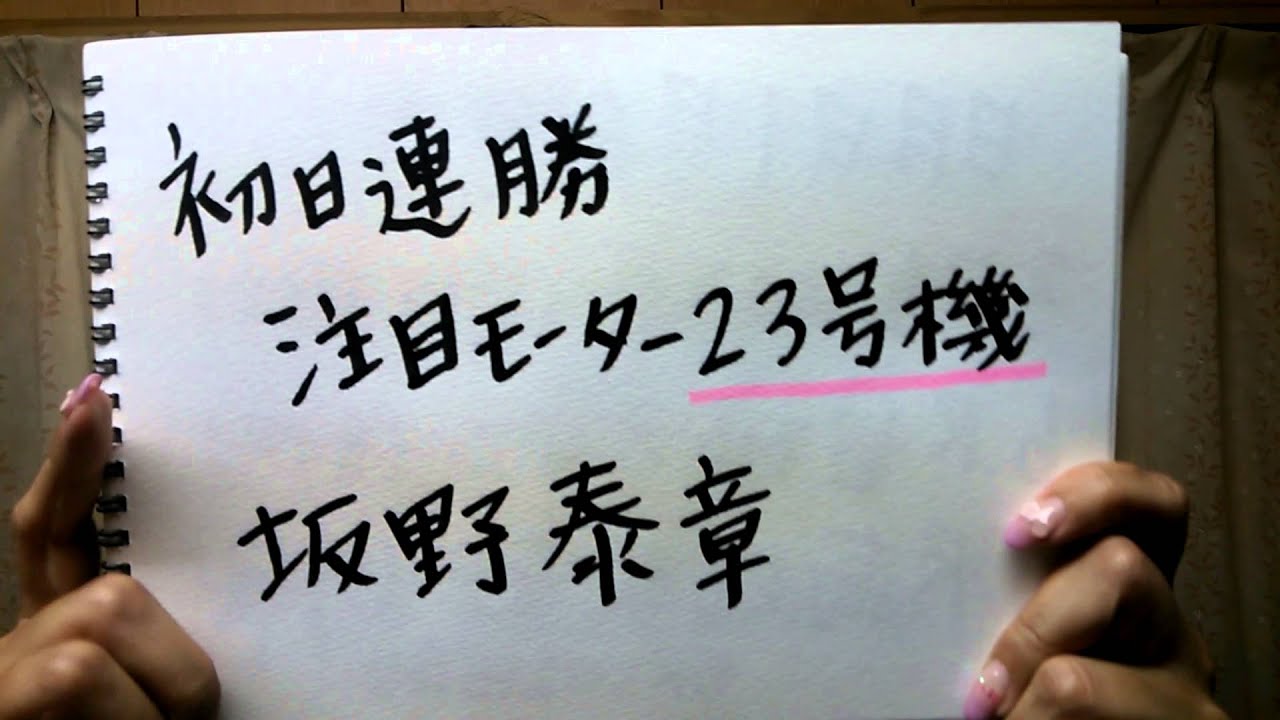 初日連勝
注目モーター23号機
坂野泰章